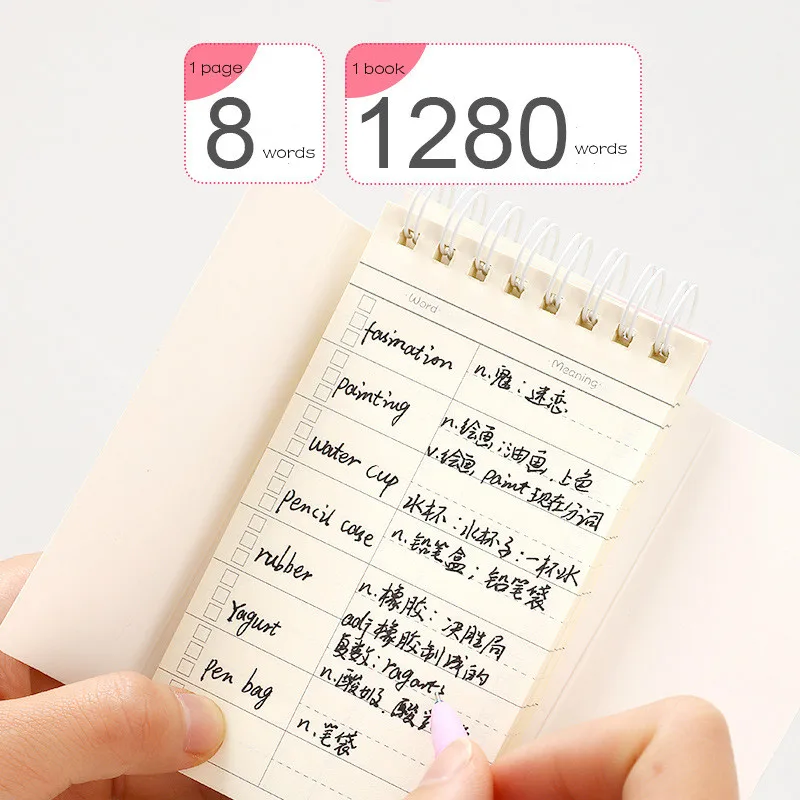 1 page
8 words
1 book
1280 words
Word
Meaning
fasination
n.魅;迷恋
painting
n.绘画;油画.上色
v.绘画, paint现在分词
water cup
水杯:水杯子:一杯水
pencil case
n.铅笔盒;铅笔袋
rubber
n.橡胶:决胜局
adj橡胶制成的
Yagurt
复数:ragarts
n.酸奶.酸
pen bag
n.笔袋